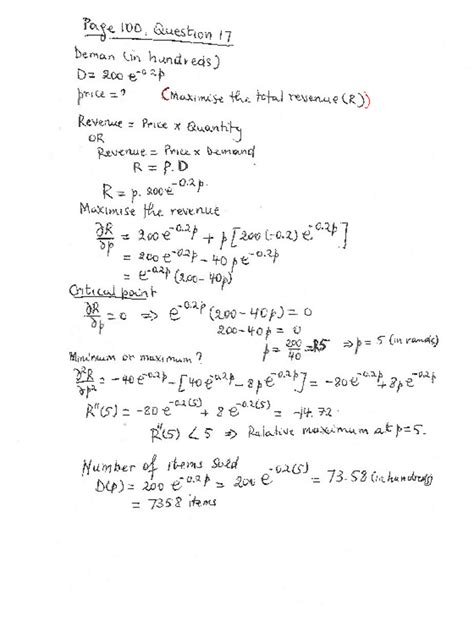 Page 100, Question 17
Deman (in hundreds)
D = 200 e^-0.2p
price = ? (Maximise the total revenue (R))
Revenue = Price × Quantity
OR
Revenue = Price × Demand
R = P.D
R = p. 200 e^-0.2p.
Maximise the revenue
∂R/∂p = 200 e^-0.2p + p [200 (-0.2) e^-0.2p]
= 200 e^-0.2p - 40 p e^-0.2p
= e^-0.2p (200 - 40p)
Critical point
∂R/∂p = 0 ⇒ e^-0.2p (200 - 40p) = 0
200 - 40p = 0
p = 200/40 = R5 ⇒ p = 5 (in rands)
Minimum or maximum?
∂²R/∂p² = -40 e^-0.2p - [40 e^-0.2p - 8p e^-0.2p] = -80 e^-0.2p + 8p e^-0.2p
R''(5) = -80 e^-0.2(5) + 8 e^-0.2(5) = -14.72
R''(5) < 5 ⇒ Relative maximum at p = 5.
Number of items sold
D(p) = 200 e^-0.2p = 200 e^-0.2(5) = 73.58 (in hundreds)
= 7358 items